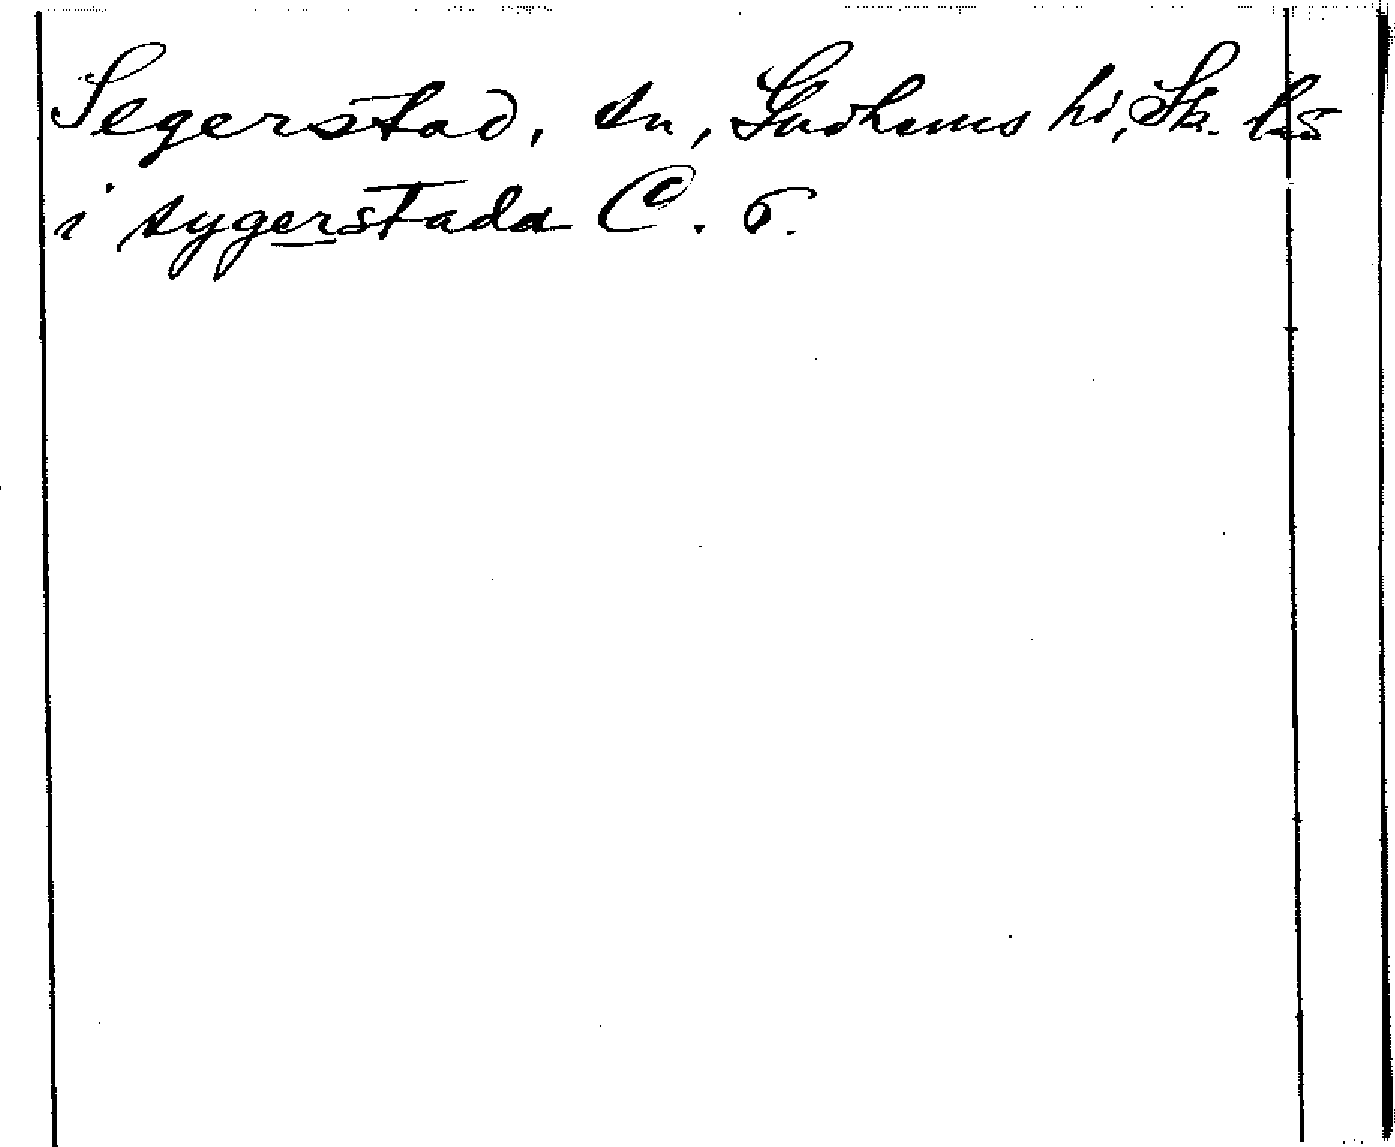 Segerstad, sn, Gudhems hd, Sk. län
i sygerstada C. 6.